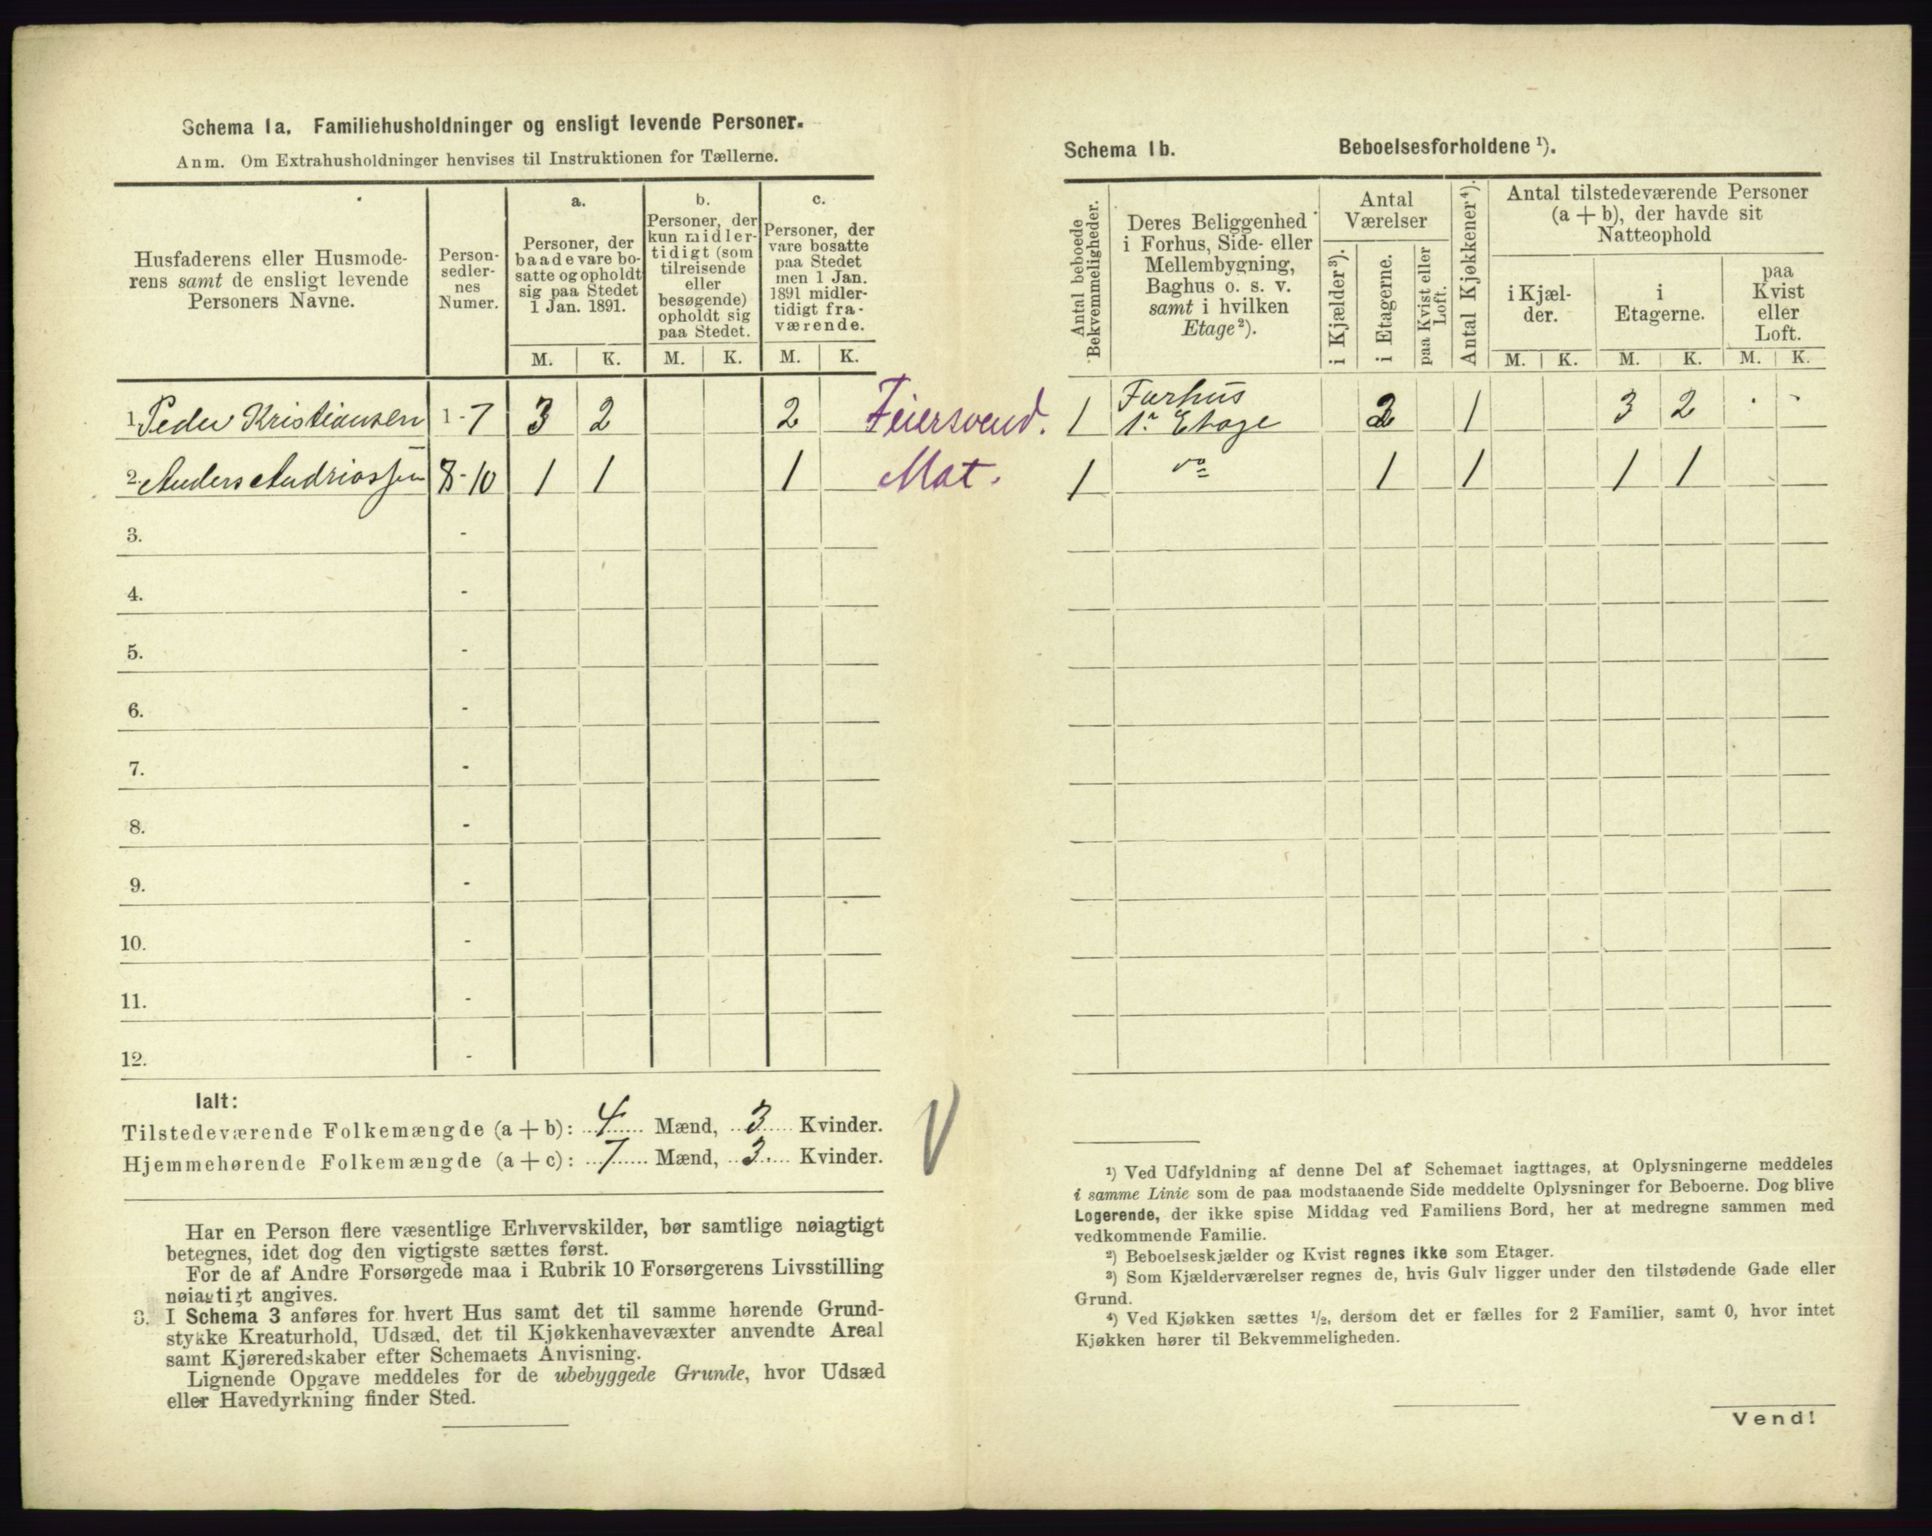 Schema 1a. Familiehusholdninger og ensligt levende Personer.
Anm. Om Extrahusholdninger henvises til Instruktionen for Tællerne.
Husfaderens eller Husmoderens samt de ensligt levende Personers Navne.
Person-sedler-nes Numer.
a. Personer, der baade vare bosatte og opholdt sig paa Stedet 1 Jan. 1891.
b. Personer, der kun midlertidigt (som tilreisende eller besøgende) opholdt sig paa Stedet.
c. Personer, der vare bosatte paa Stedet men 1 Jan. 1891 midlertidigt fraværende.
M. K. M. K. M. K.
1. Peder Kristiansen 1-7 3 2 2 Feiersvend.
2. Anders Andriassen 8-10 1 1 1 Mat.
3. -
4. -
5. -
6. -
7. -
8. -
9. -
10. -
11. -
12. -
Ialt:
Tilstedeværende Folkemængde (a + b): 4 Mænd, 3 Kvinder.
Hjemmehørende Folkemængde (a + c): 7 Mænd, 3 Kvinder.
V
Har en Person flere væsentlige Erhvervskilder, bør samtlige nøiagtigt
betegnes, idet dog den vigtigste sættes først.
For de af Andre Forsørgede maa i Rubrik 10 Forsørgerens Livsstilling
nøiagtigt angives.
3. I Schema 3 anføres for hvert Hus samt det til samme hørende Grund-
stykke Kreaturhold, Udsæd, det til Kjøkkenhavevæxter anvendte Areal
samt Kjøreredskaber efter Schemaets Anvisning.
Lignende Opgave meddeles for de ubebyggede Grunde, hvor Udsæd
eller Havedyrkning finder Sted.
Schema 1b. Beboelsesforholdene ¹).
Antal beboede Bekvemmeligheder.
Deres Beliggenhed i Forhus, Side- eller Mellembygning, Baghus o. s. v. samt i hvilken Etage ²).
Antal Værelser
i Kjælder ³).
i Etagerne.
paa Kvist eller Loft.
Antal Kjøkkener ⁴).
Antal tilstedeværende Personer (a + b), der havde sit Natteophold
i Kjæl-der.
i Etagerne.
paa Kvist eller Loft.
M. K. M. K. M. K.
1 Forhus 1ᵉ Etage 2 1 3 2 . .
1 do 1 1 1 1
¹) Ved Udfyldning af denne Del af Schemaet iagttages, at Oplysningerne meddeles
i samme Linie som de paa modstaaende Side meddelte Oplysninger for Beboerne. Dog blive
Logerende, der ikke spise Middag ved Familiens Bord, her at medregne sammen med
vedkommende Familie.
²) Beboelseskjælder og Kvist regnes ikke som Etager.
³) Som Kjælderværelser regnes de, hvis Gulv ligger under den tilstødende Gade eller
Grund.
⁴) Ved Kjøkken sættes ½, dersom det er fælles for 2 Familier, samt 0, hvor intet
Kjøkken hører til Bekvemmeligheden.
Vend!